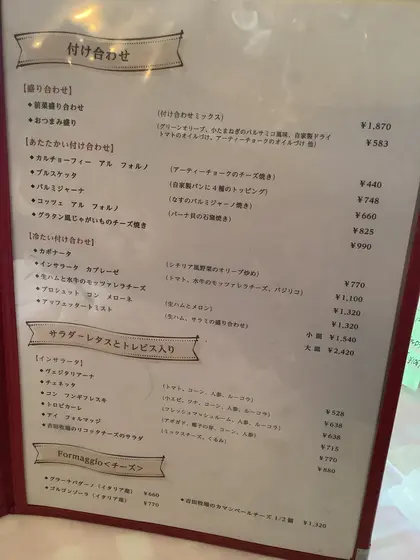 付け合わせ
【盛り合わせ】
◆前菜盛り合わせ (付け合わせミックス) ¥1,870
◆おつまみ盛り (グリーンオリーブ、小たまねぎのバルサミコ風味、自家製ドライトマトのオイルづけ、アーティーチョークのオイルづけ 他) ¥583
【あたたかい付け合わせ】
◆カルチョーフィー アル フォルノ (アーティーチョークのチーズ焼き) ¥440
◆ブルスケッタ (自家製パンに4種のトッピング) ¥748
◆パルミジャーナ (なすのパルミジャーノ焼き) ¥660
◆コッツェ アル フォルノ (パーナ貝の石窯焼き) ¥825
◆グラタン風じゃがいものチーズ焼き ¥990
【冷たい付け合わせ】
◆カポナータ (シチリア風野菜のオリーブ炒め) ¥770
◆インサラータ カプレーゼ (トマト、水牛のモッツァレラチーズ、バジリコ) ¥1,100
◆生ハムと水牛のモッツァレラチーズ ¥1,320
◆プロシュット コン メローネ (生ハムとメロン) ¥1,320
◆アッフェッタートミスト (生ハム、サラミの盛り合わせ) 小皿 ¥1,540
大皿 ¥2,420
サラダーレタスとトレビス入り
【インサラータ】
◆ヴェジタリアーナ (トマト、コーン、人参、ルーコラ) ¥528
◆チェネッタ (小エビ、ツナ、コーン、人参、ルーコラ) ¥638
◆コン フンギフレスキ (フレッシュマッシュルーム、人参、ルーコラ) ¥638
◆トロピカーレ (アボガド、椰子の芽、コーン、人参) ¥715
◆アイ フォルマッジ (ミックスチーズ、くるみ) ¥770
◆吉田牧場のリコッタチーズのサラダ ¥880
Formaggio<チーズ>
◆グラーナパダーノ(イタリア産) ¥660
◆ゴルゴンゾーラ(イタリア産) ¥770
◆吉田牧場のカマンベールチーズ 1/2個 ¥1,320